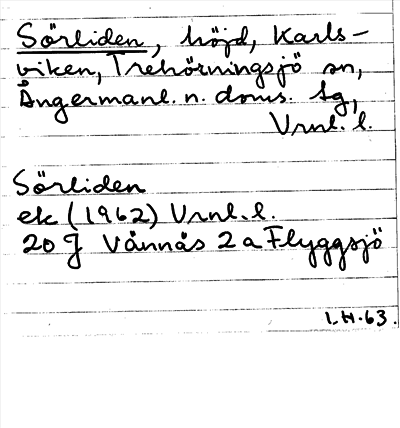 Sörliden, höjd, Karls-
viken, Trehörningsjö sn,
Ångermanl. n. doms. tg,
Vrnl. l.
Sörliden
ek (1962) Vrnl. l.
20 J Vännäs 2 a Flyggsjö
I. H. 63.